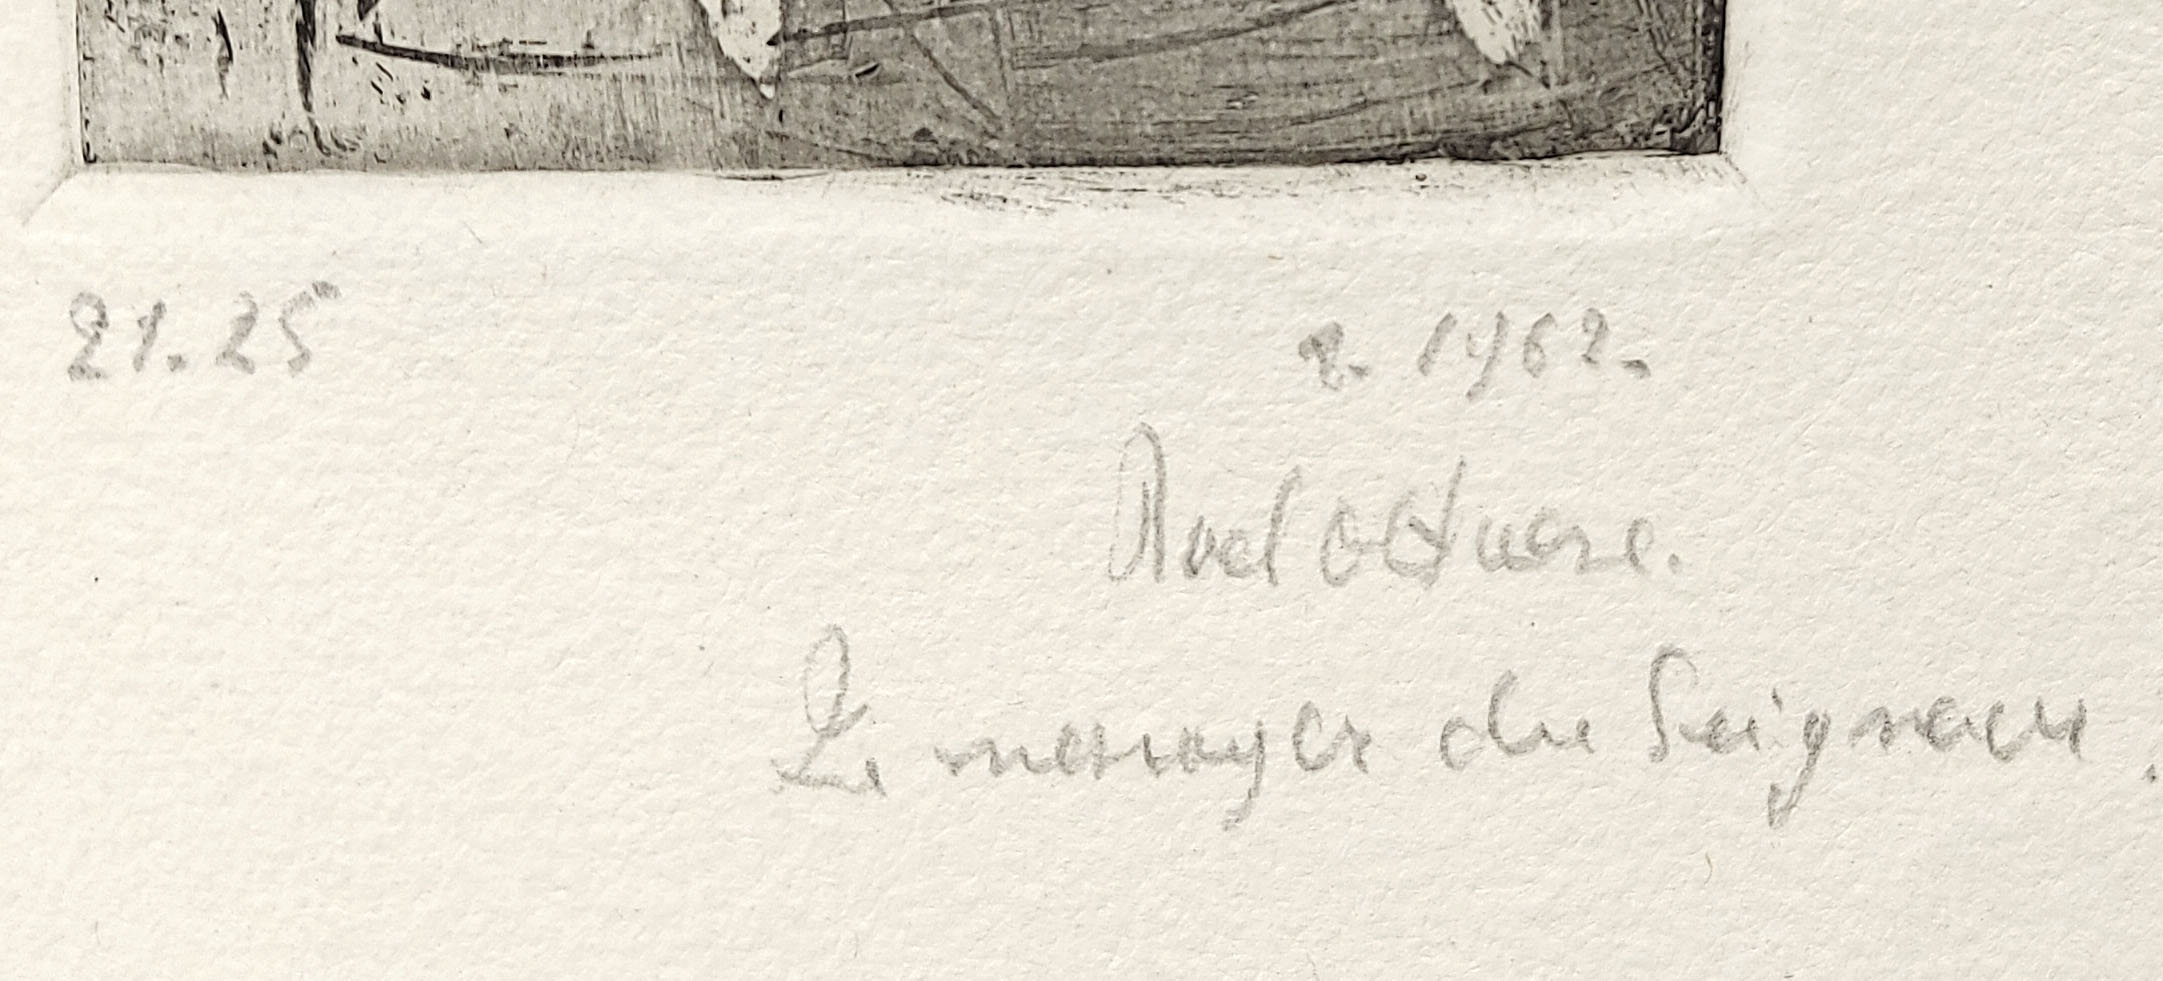 21.25
2. 1962.
Roel D'Haese.
Le messager du Seigneur.